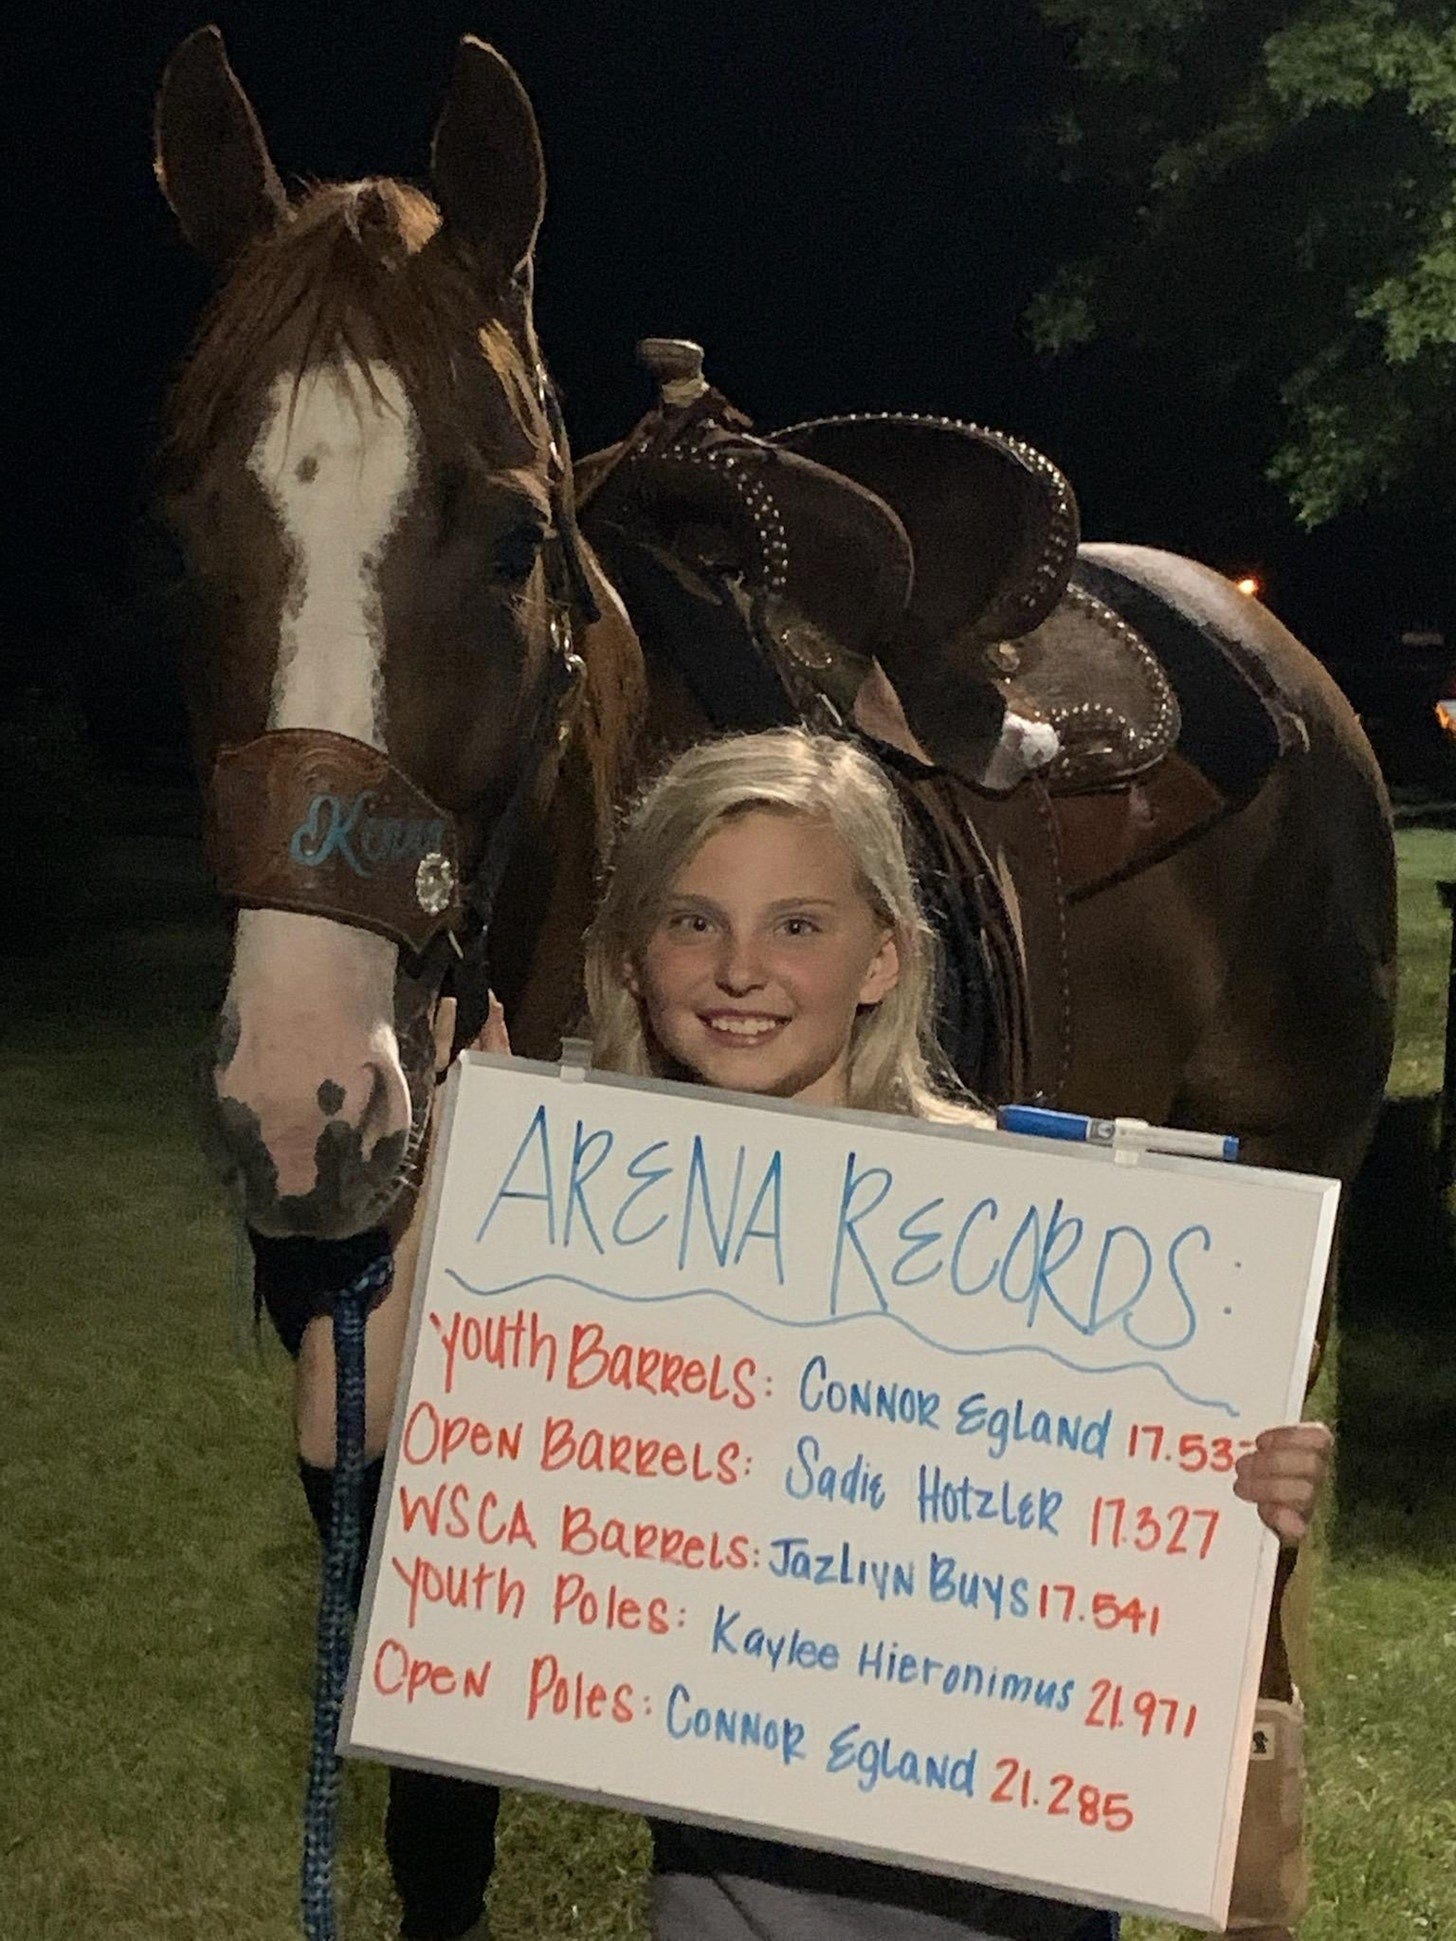 ARENA RECORDS:
Youth Barrels: Connor Egland 17.53
Open Barrels: Sadie Hotzler 17.327
WSCA Barrels: Jazliyn Buys 17.541
Youth Poles: Kaylee Hieronimus 21.971
Open Poles: Connor Egland 21.285